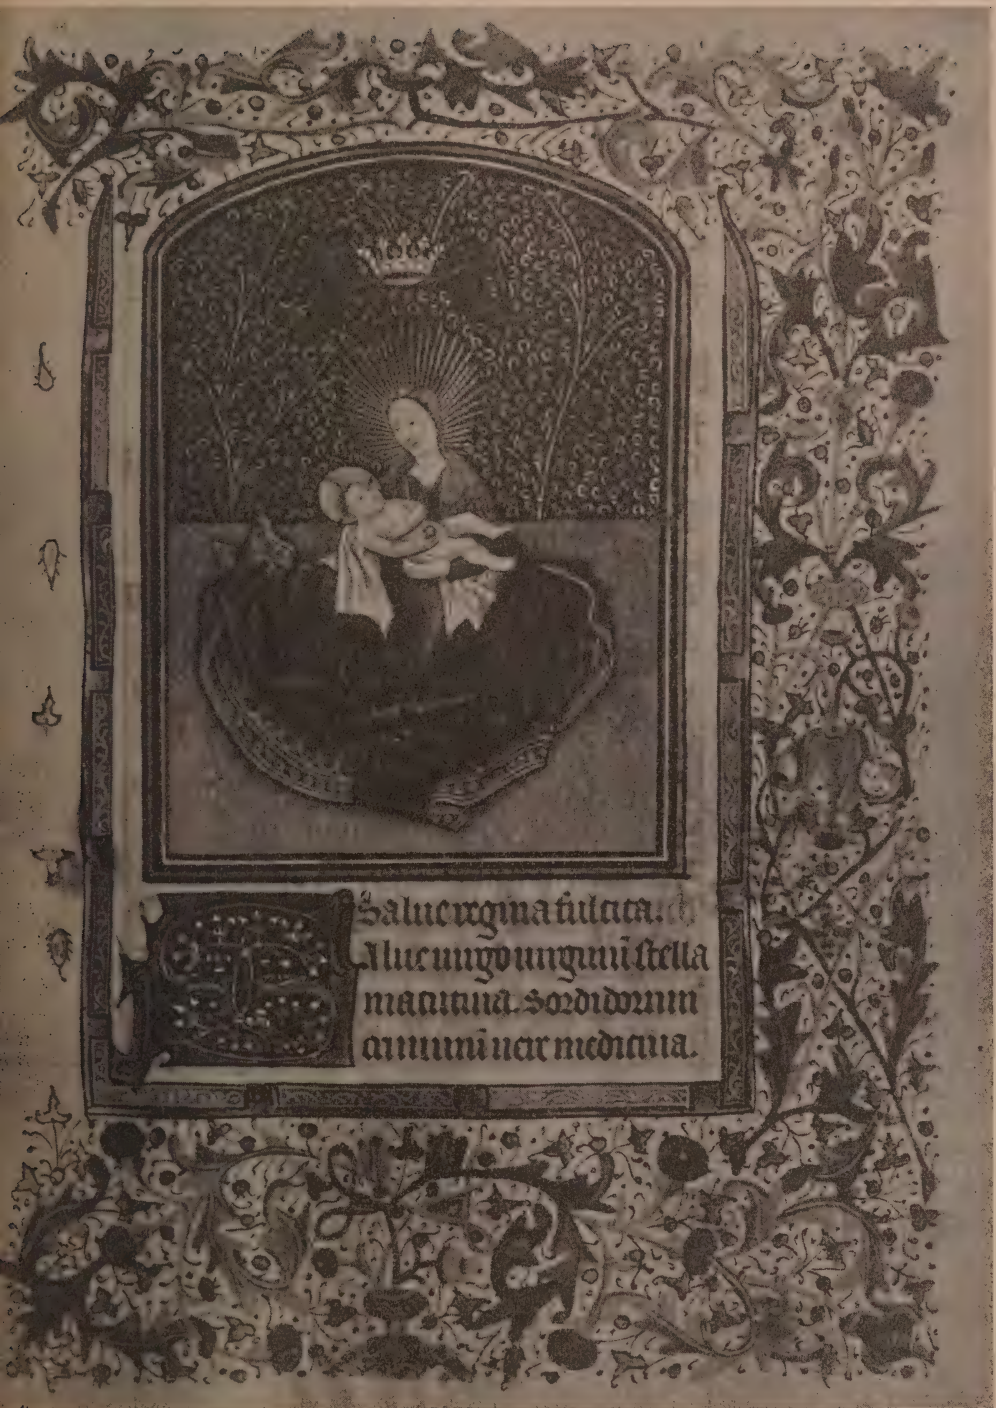 Salue regina fulcita.
Salue uirgo uirginū stella
matutina. Sordidorum
criminū uere medicina.